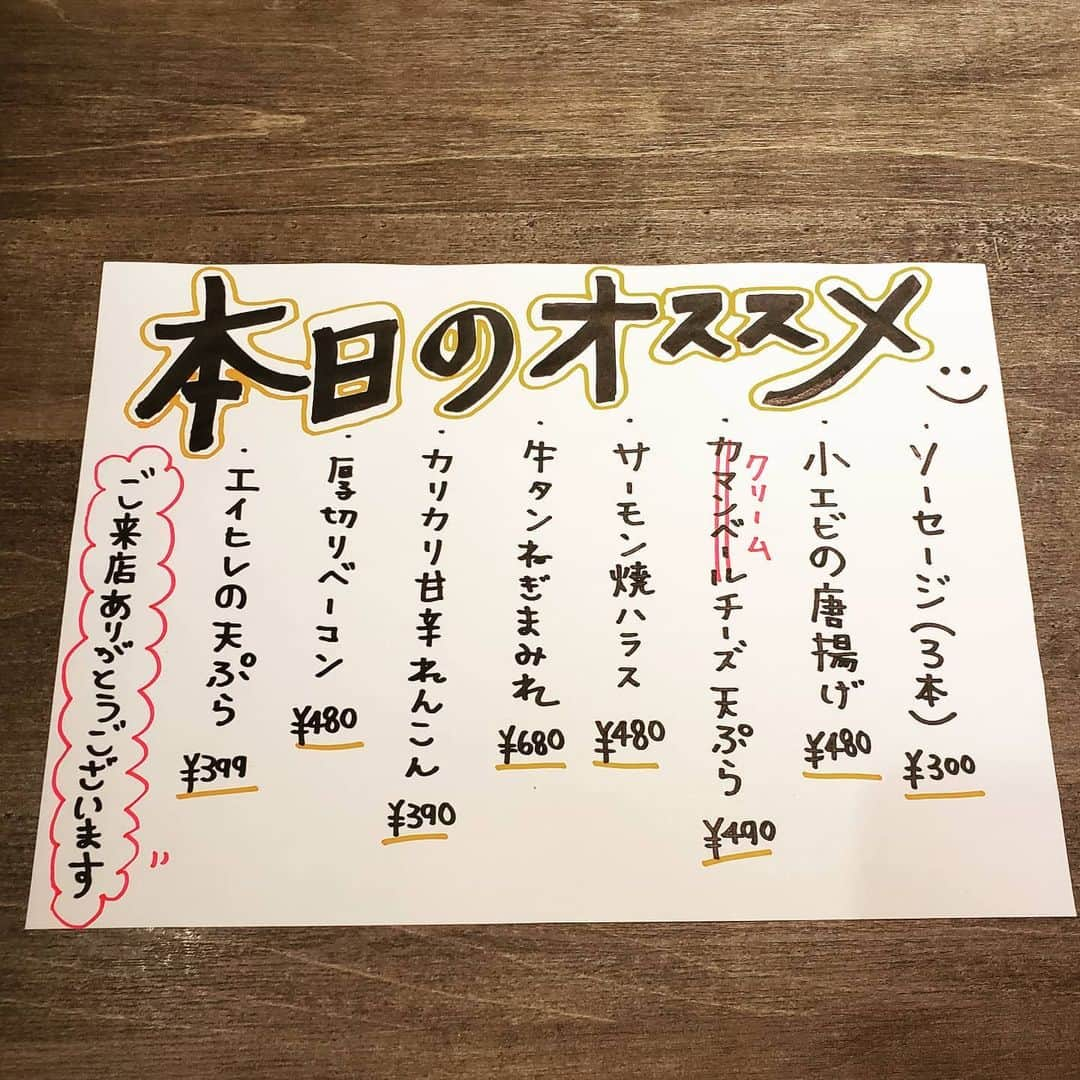 本日のオススメ
・ソーセージ(3本)
¥300
・小エビの唐揚げ
¥480
クリーム
・カマンベールチーズ天ぷら
¥490
・サーモン焼ハラス
¥480
・牛タンねぎまみれ
¥680
・カリカリ甘辛れんこん
¥390
・厚切りベーコン
¥480
・エイヒレの天ぷら
¥399
ご来店ありがとうございます